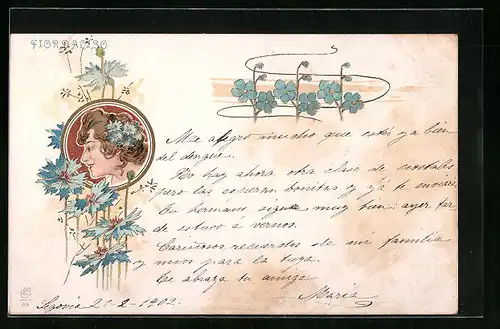 FIORDALISO
Me alegro mucho que estés ya bien
del dengue.
No hay ahora otra clase de postales
pero las esperan bonitas y ya te enviaré.
Tu hermano sigue muy bien; ayer tar
de estuvo á vernos.
Cariñosos recuerdos de mi familia
y mios para la tuya.
Te abraza tu amiga
María
Segovia 21-2-1902.